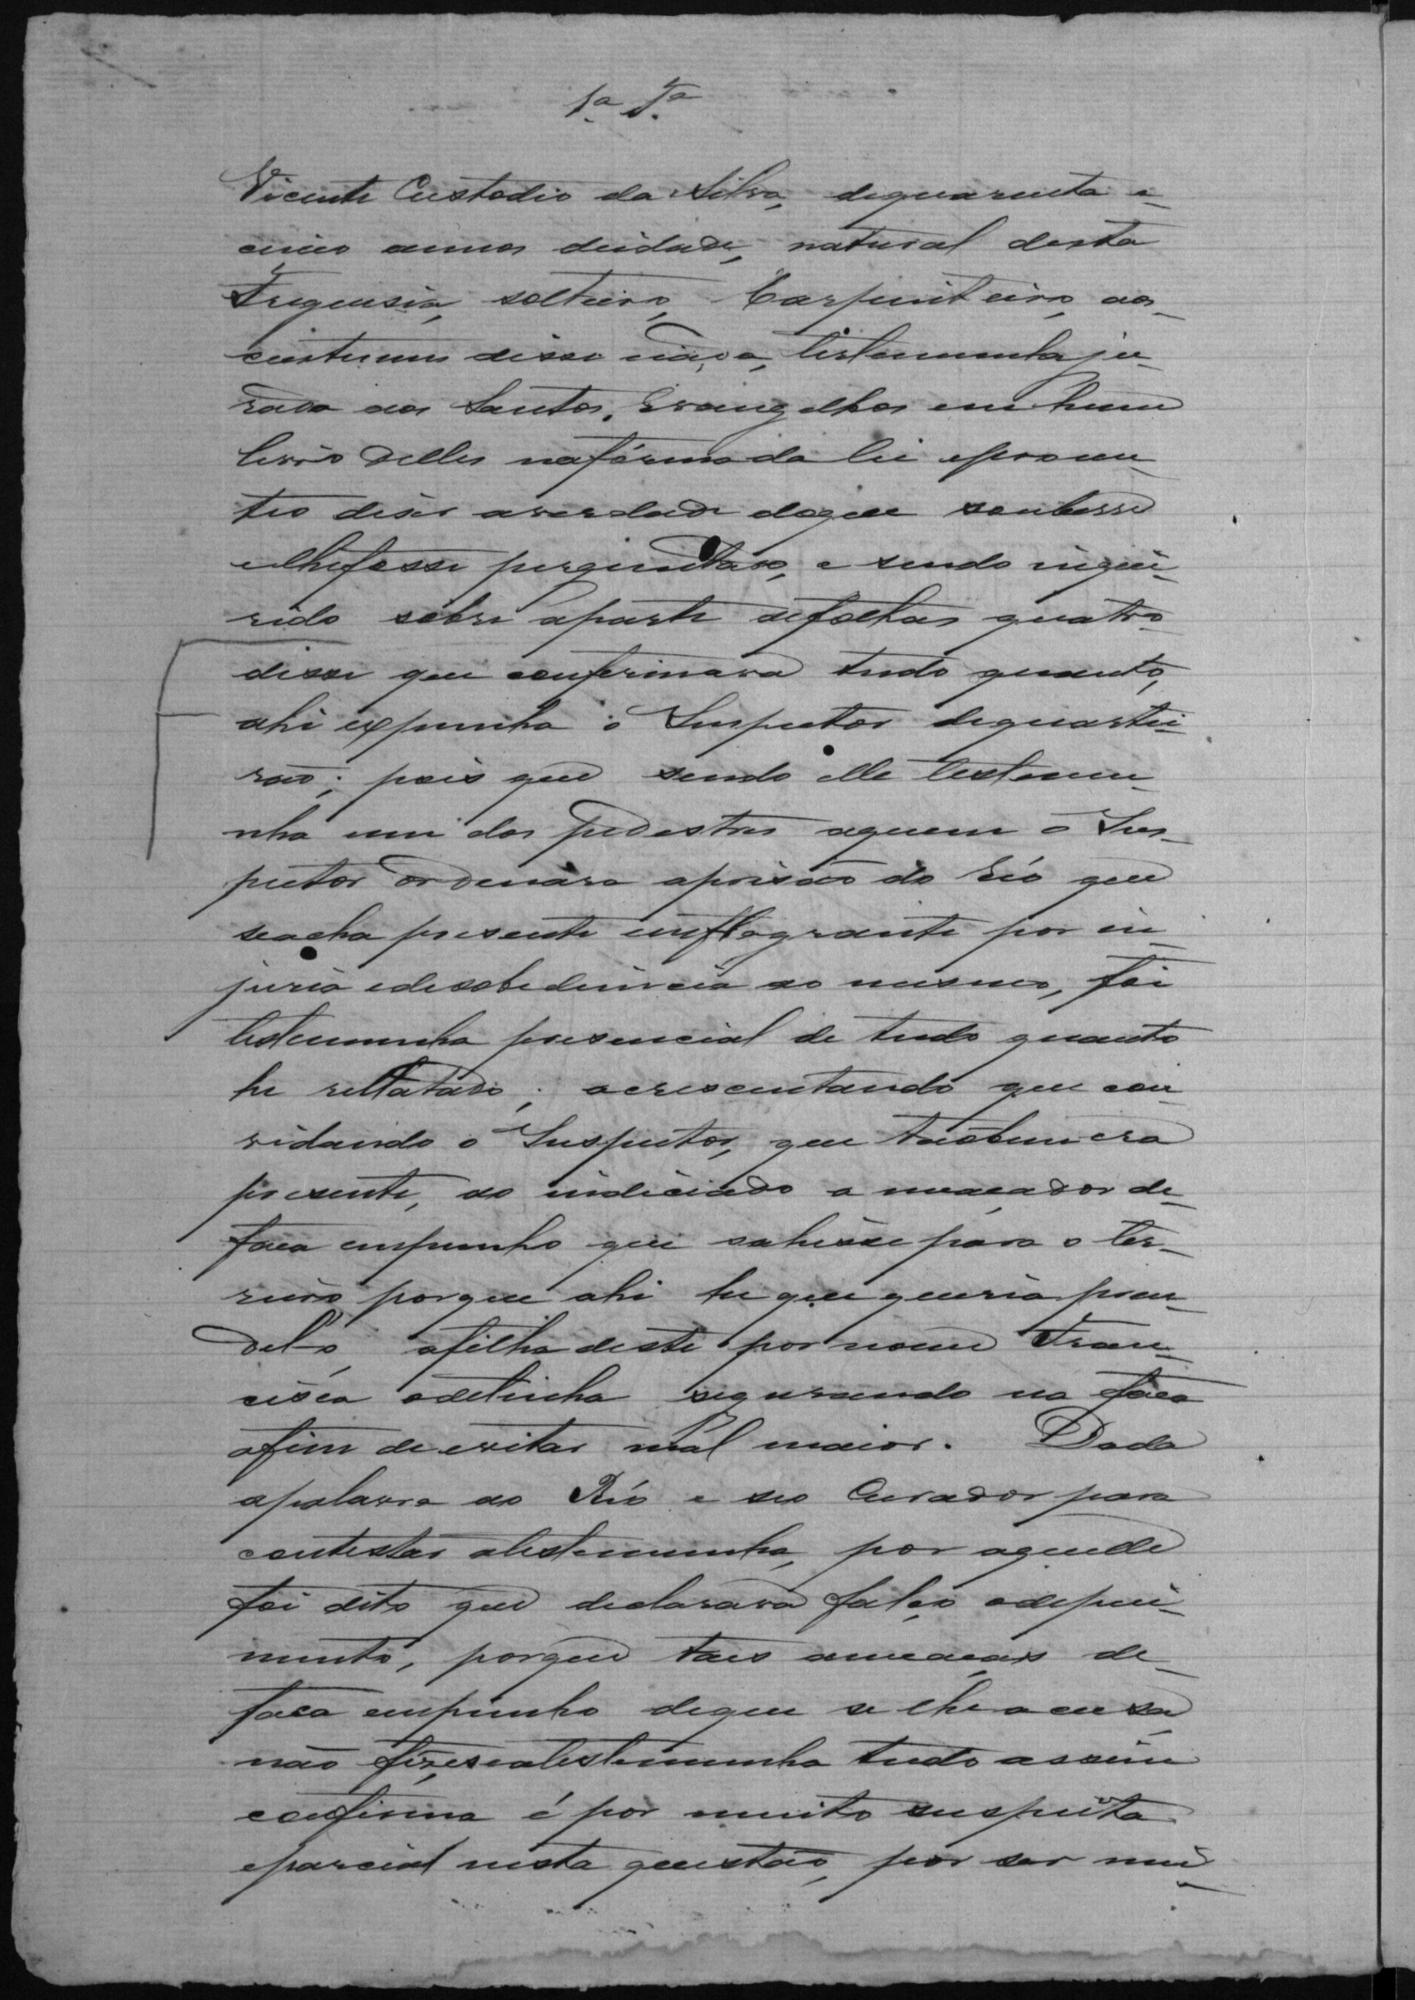 1ª Tª
Vicente Custodio da Silva, dequarenta e
cinco annos deidade, natural desta
Freguesia, solteiro, Carpinteiro, aos
custumes disse nada, testemunha ju-
rada aos Santos Evangelhos em hum
livro delles nafórma da lei eprome-
teo diser averdade doque soubesse
elhefosse perguntado, e sendo inque-
rido sobre aparte defolhas quatro
disse que confirmava tudo quanto,
ahi expunha o Inspector dequartei-
rão; pois que sendo elle testemu-
nha um dos pedestres aquem o Ins-
pector ordenara aprisão do Réo que
seacha presente emflagrante por in-
juria edesobediencia ao mesmo, foi
testemunha presencial de tudo quanto
he relatado; acrescentando que con-
vidando o Inspector, que tãobem era
presente, ao indiciado ameaçador de
faca empunho que sahisse para o ter-
reiro porque ahi he que queria pren-
del-o, afilha deste por nome Fran-
cisca odetinha segurando na faca
afim de evitar mal maior. Dada
apalavra ao Réo e seo Curador para
contestar atestemunha, por aquelle
foi dito que declarava falço odepoi-
mento, porque taes ameaças de
faca empunho deque se lhe accusa
não fez, eseatestemunha tudo assim
confirma é por muito suspeita
eparcial nesta questão, por ser mui-